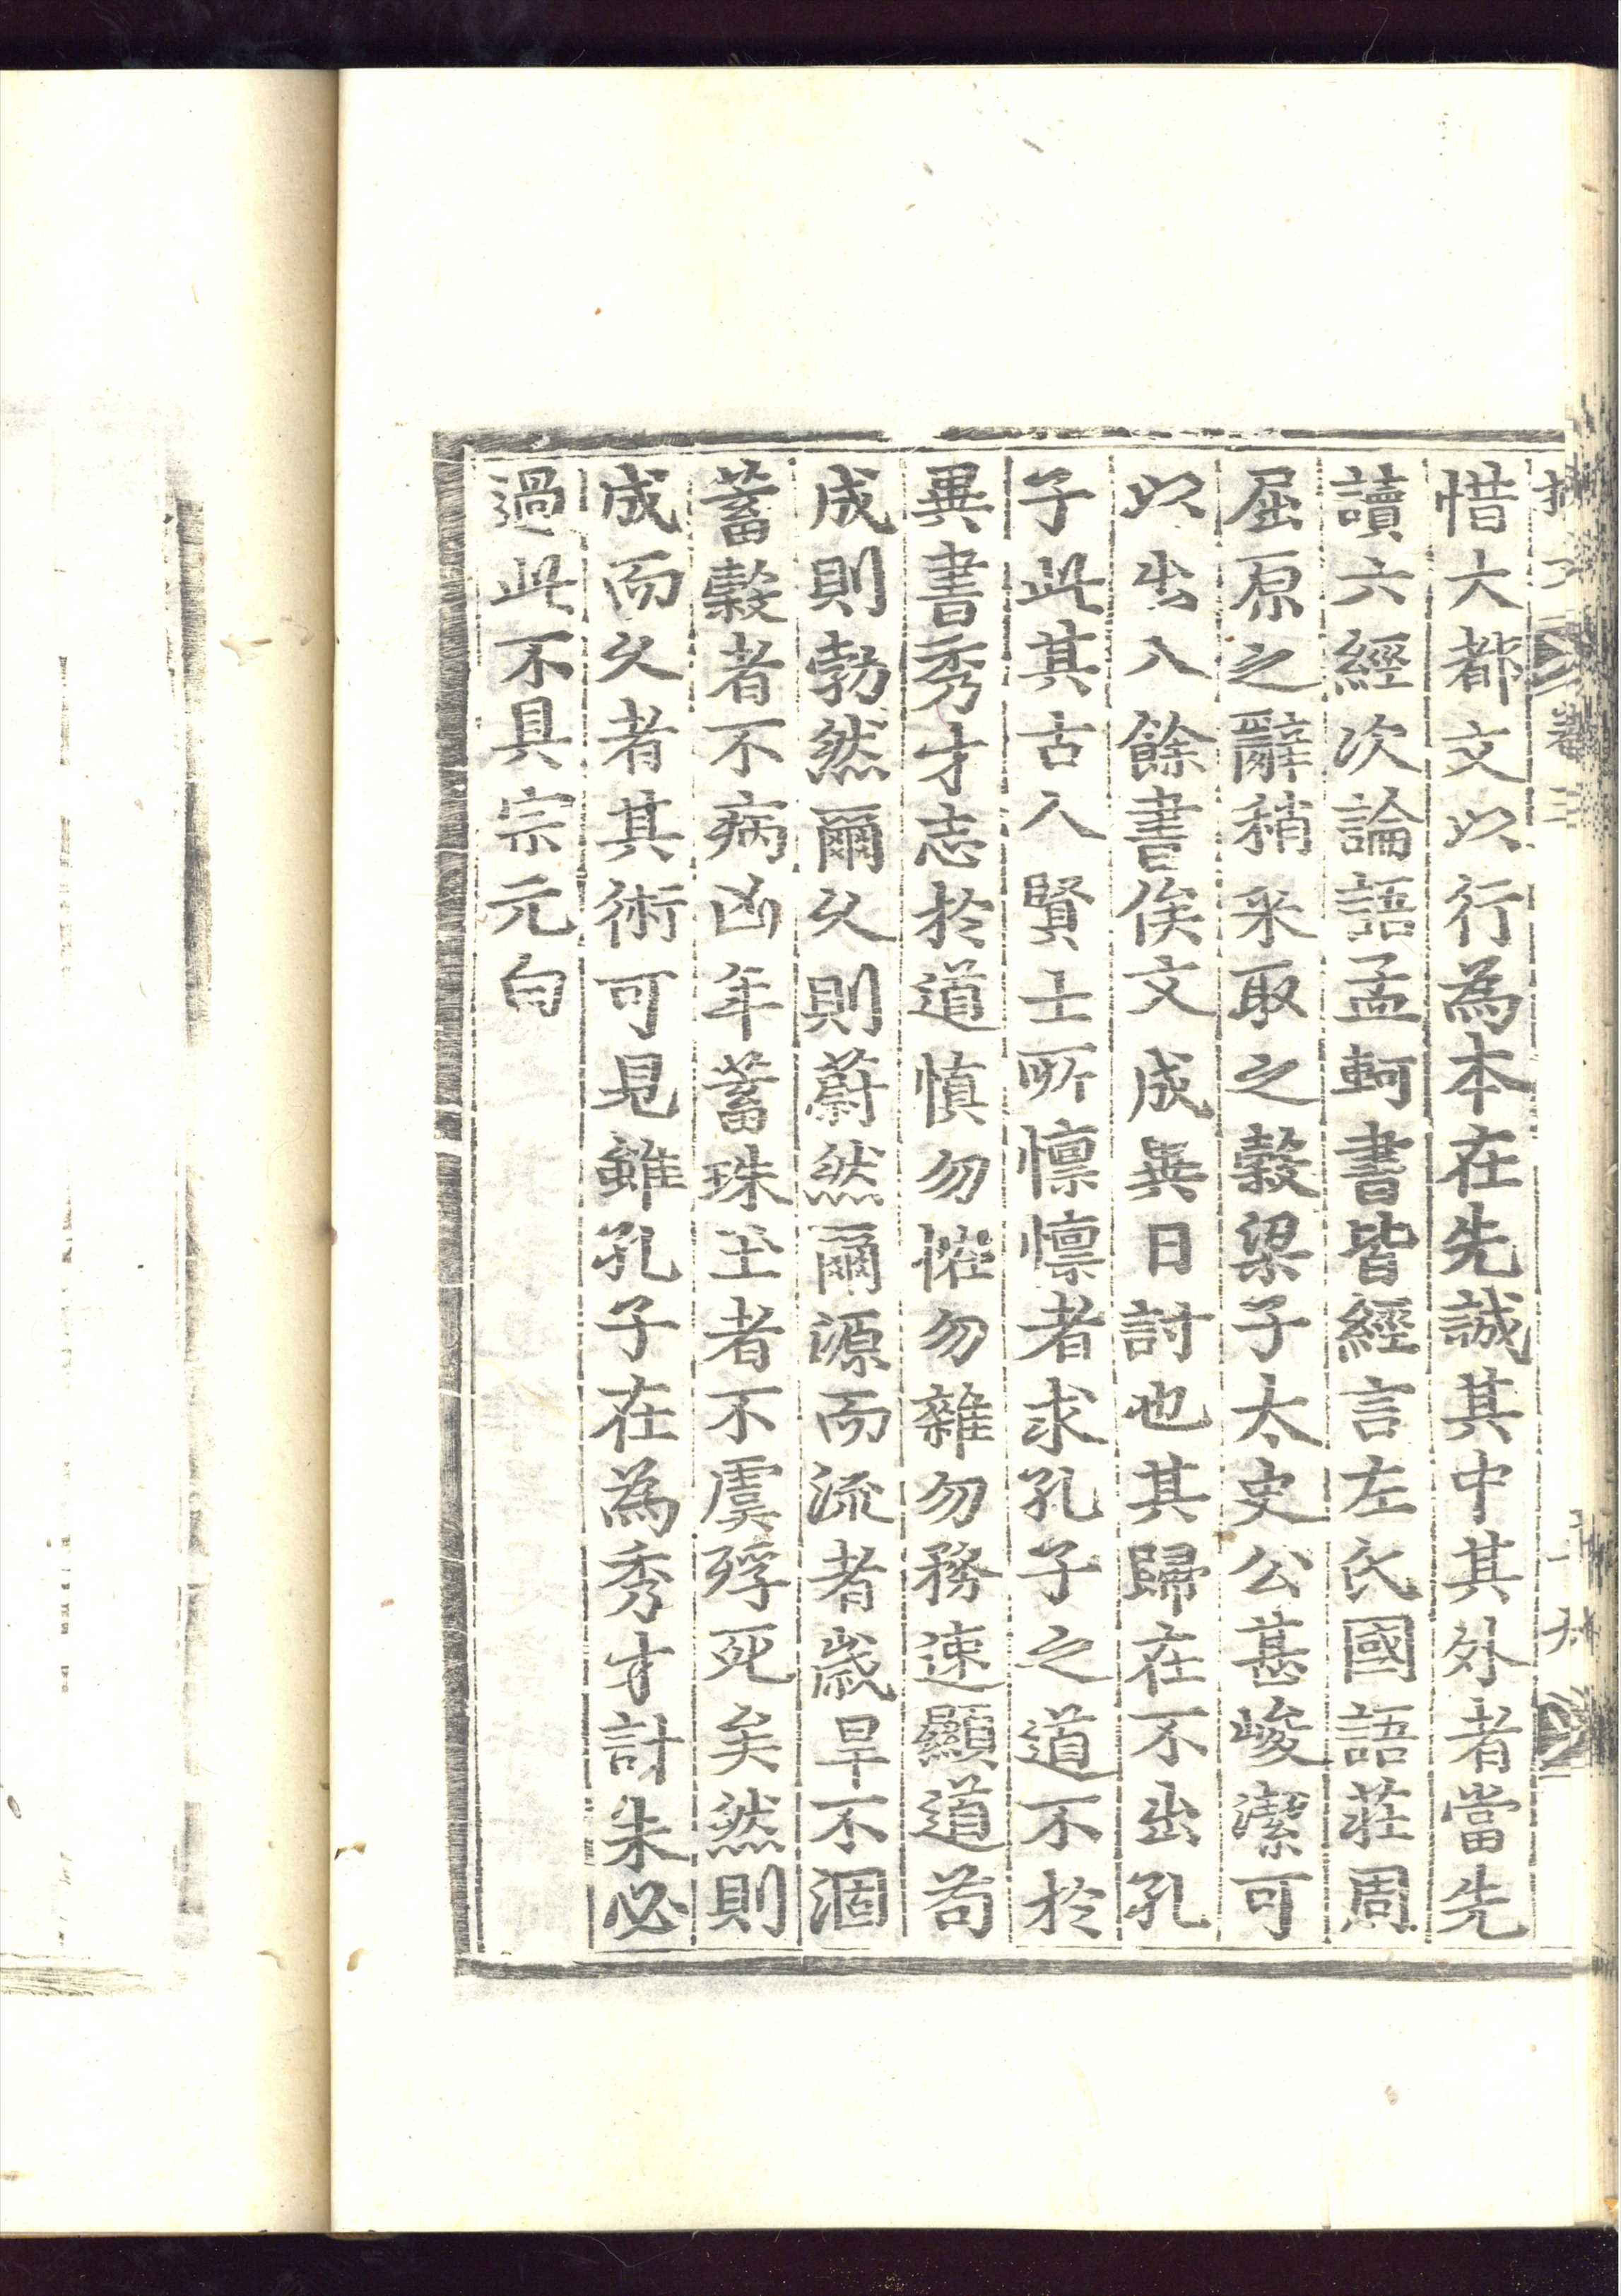 惜大都文以行為本在先誠其中其外者當先
讀六經次論語孟軻書皆經言左氏國語莊周
屈原之辭稍采取之穀梁子太史公甚峻潔可
以出入餘書俟文成異日討也其歸在不出孔
子此其古人賢士所懍懍者求孔子之道不於
異書秀才志於道慎勿怪勿雜勿務速顯道苟
成則勃然爾久則蔚然爾源而流者歲旱不涸
蓄穀者不病凶年蓄珠玉者不虞殍死矣然則
成而久者其術可見雖孔子在為秀才計未必
過此不具宗元白